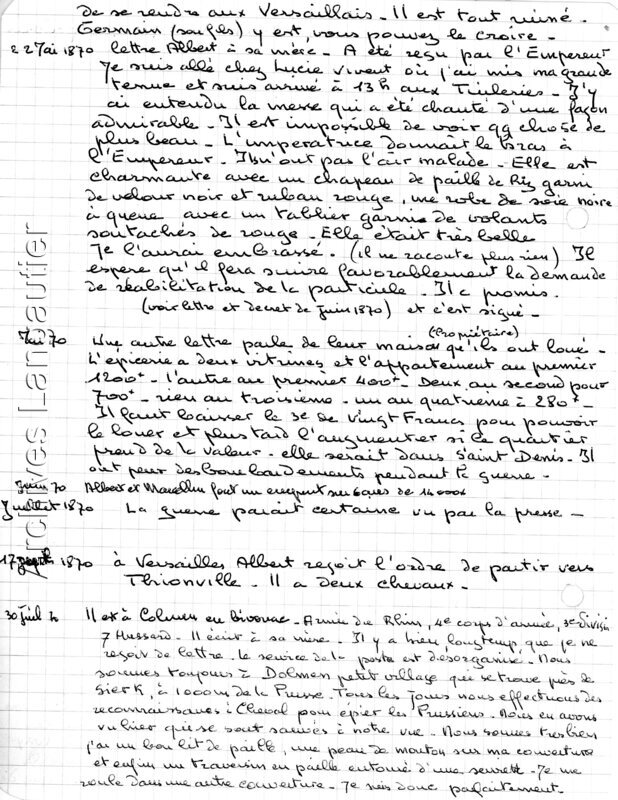 de se rendre aux Versaillais - Il est tout ruiné -
Germain (son fils) y est, vous pouvez le croire -
22 Mai 1870 lettre Albert à sa mère - A été reçu par l'Empereur
Je suis allé chez Lucie Vivent où j'ai mis ma grande
tenue et suis arrivé à 13h aux Tuileries - J'y
ai entendu la messe qui a été chanté d'une façon
admirable - Il est impossible de voir qq chose de
plus beau - L'imperatrice donnait le bras à
l'Empereur - Ils n'ont pas l'air malade - Elle est
charmante avec un chapeau de paille de Riz garni
de velour noir et ruban rouge, une robe de soie noire
à queue avec un tablier garnie de volants
soutachés de rouge - Elle était très belle
Je l'aurai embrassé. (il ne racoute plus rien) Il
espere qu'il fera suivre favorablement la demande
de réabilitation de la particule - Il a promis.
(voir lettre et decret de Juin 1870) et c'est signé -
Mai 70 Une autre lettre parle de leur maison qu'ils ont loué -
(Propriétaire)
L'épicerie a deux vitrines et l'appartement au premier
1200f - l'autre au premier 400f - Deux au second pour
700f - rien au troisième - un au quatrième à 280f -
Il faut baisser le 3e de vingt Francs pour pouvoir
le louer et plus tard l'augmenter si le quartier
prend de la valeur - elle serait dans Saint Denis - Il
ont peur des bombardements pendant la guerre -
Juin 70 Albert et Marcellin font un emprunt sur 6 ans de 14000f
Juillet 1870 La guerre parait certaine vu par la presse -
17 1870 à Versailles Albert reçoit l'ordre de partir vers
Thionville - Il a deux chevaux -
30 Juil 70 Il est à Colmen en bivouac - Armée du Rhin, 4e corps d'armée, 3e Division
7 Hussard - Il écrit à sa mère - Il y a bien longtemps que je ne
reçoit de lettre - le service de la poste est désorganisé - Nous
sommes toujours à Dolmen petit village qui se trouve près de
Sierk, à 1000m de la Prusse. Tous les jours nous effectuons des
reconnaissances à Cheval pour épier les Prussiens - Nous en avons
vu hier qui se sont sauvés à notre vue - Nous sommes tres bien
j'ai un bon lit de paille, une peau de mouton sur ma couverture
et enfin un traversin en paille entouré d'une serviette - Je me
roule dans une autre couverture - Je suis donc parfaitement -
Archives Langautier